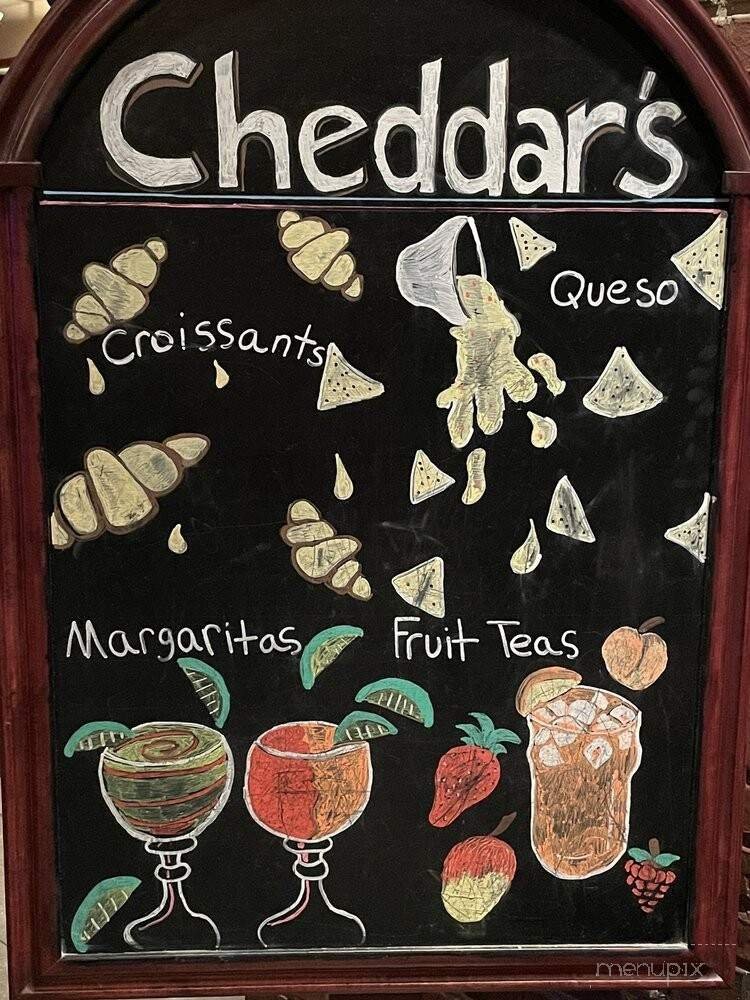 Cheddar's
Croissants
Queso
Margaritas
Fruit Teas
menupix